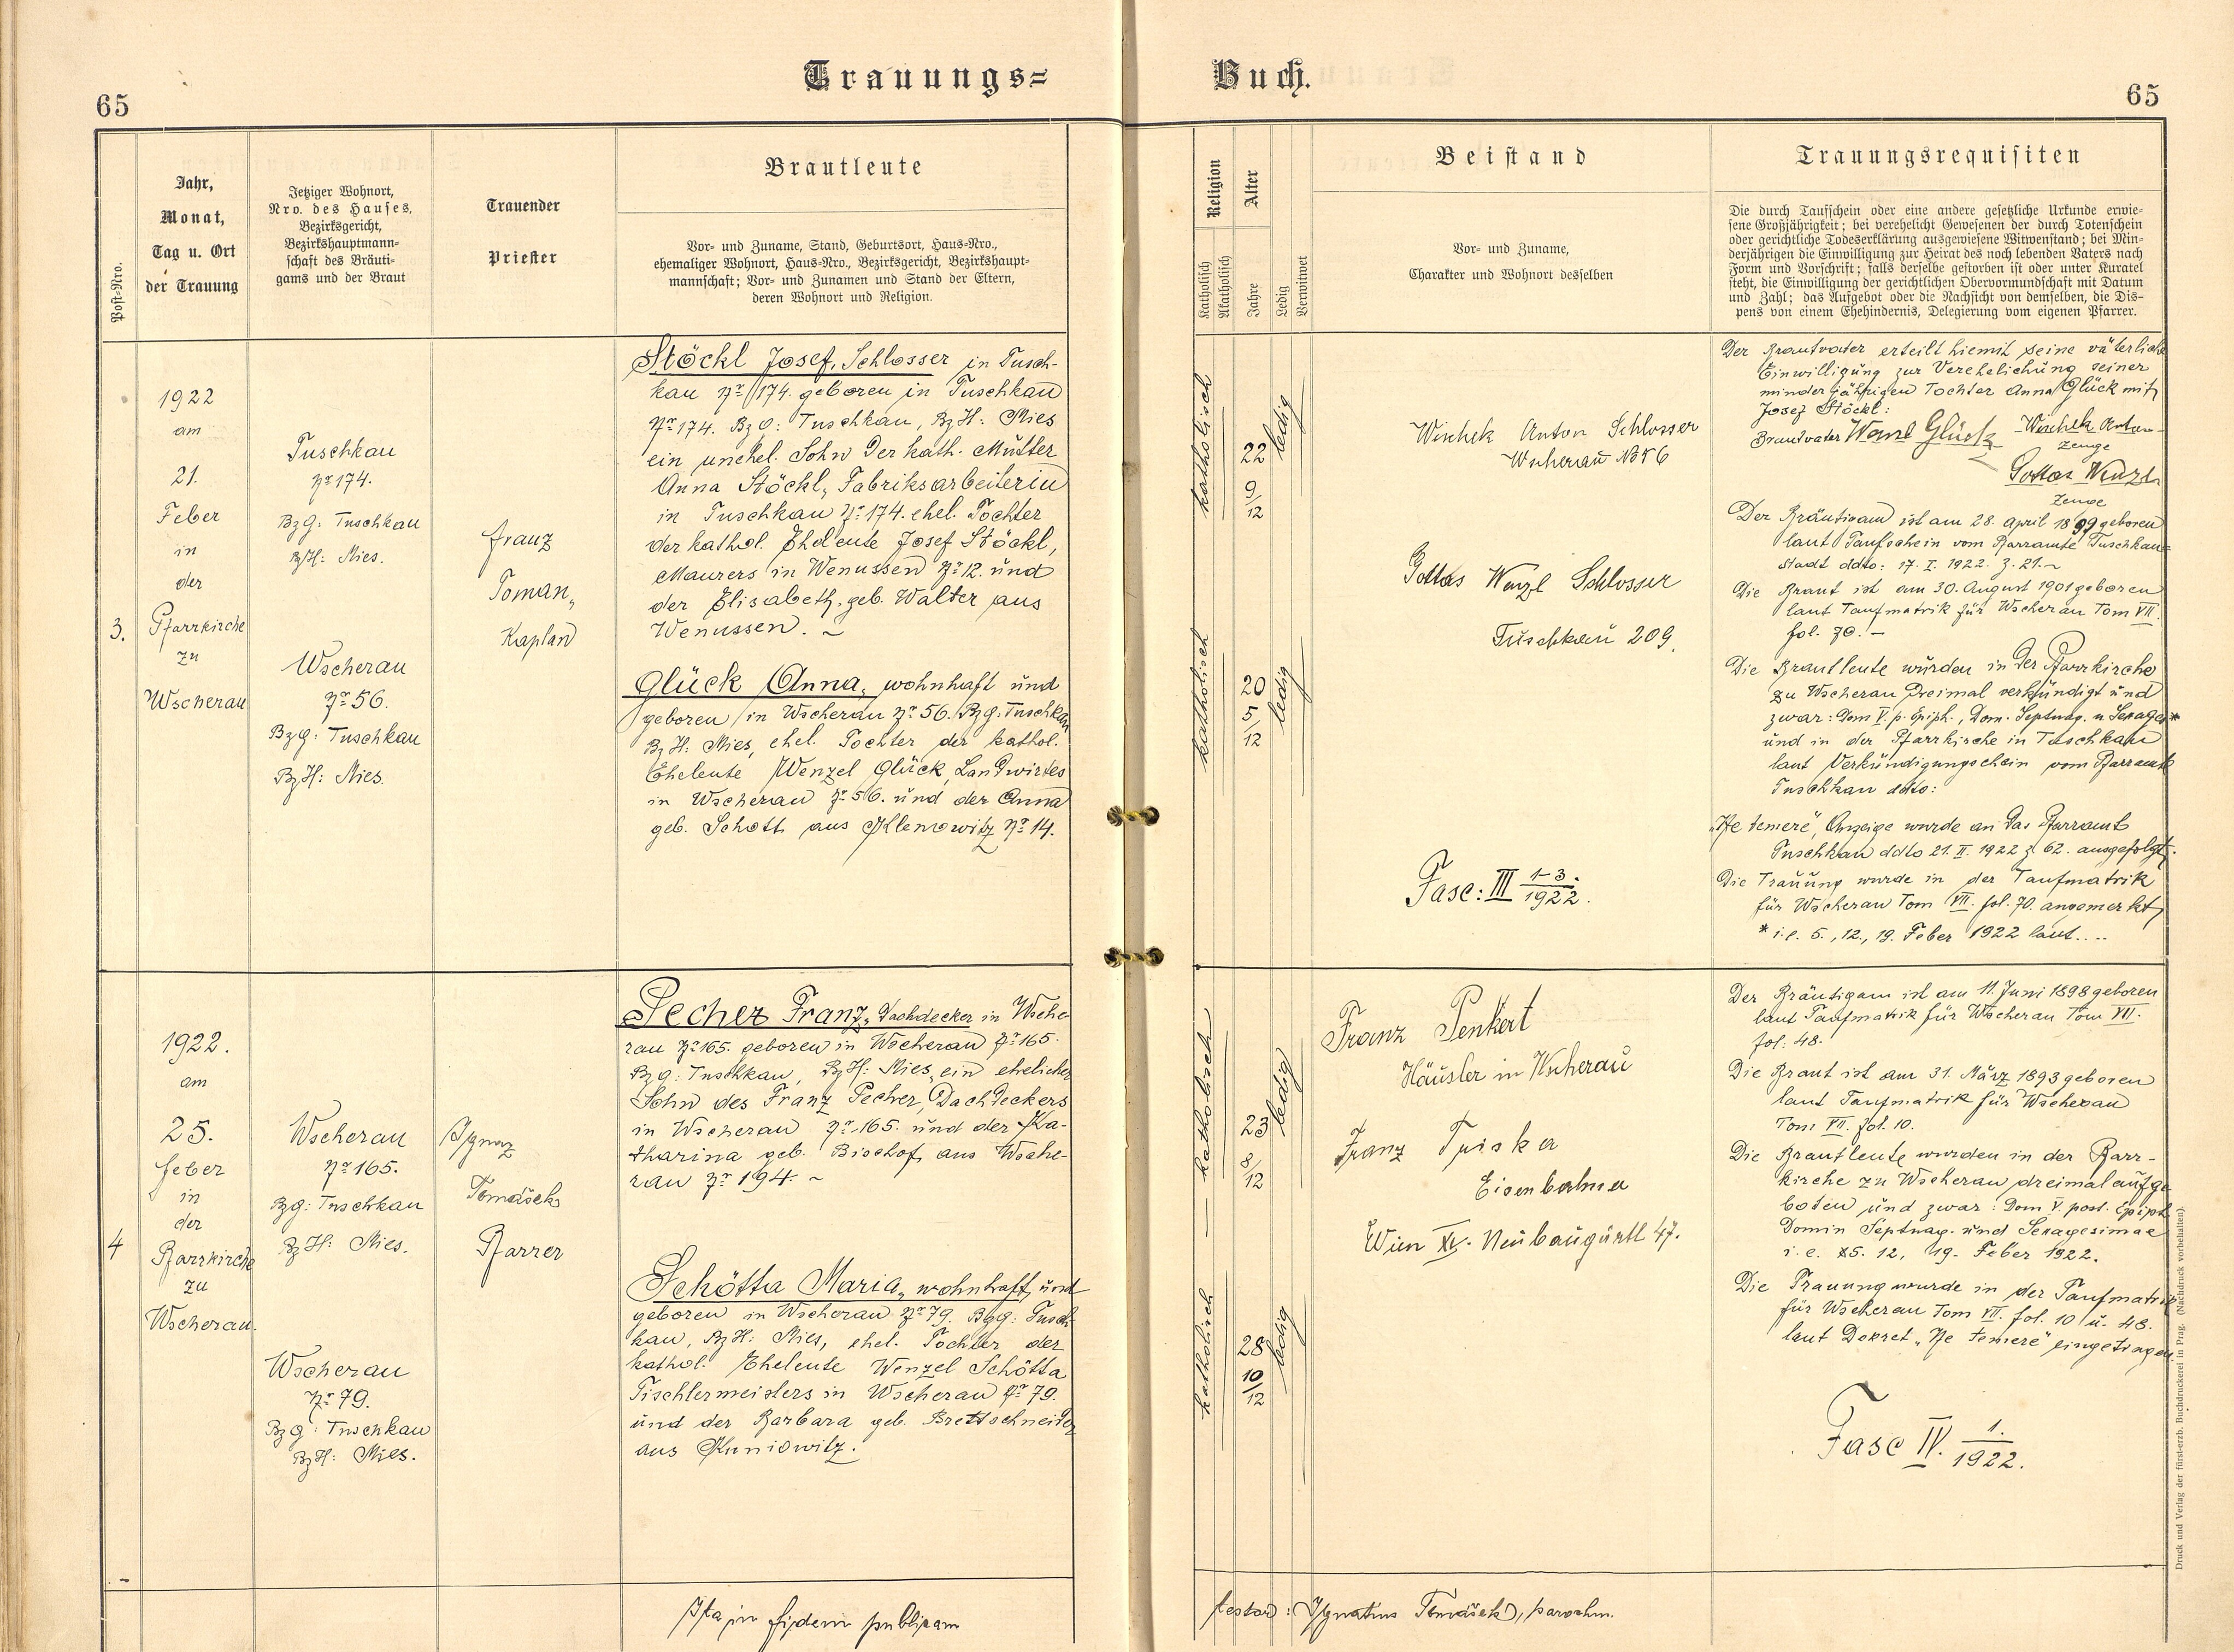 Trauungs=
Buch.
65
65
Post-Nro.
Jahr,
Monat,
Tag u. Ort
der Trauung
Jetziger Wohnort,
Nro. des Hauses,
Bezirksgericht,
Bezirkshauptmann-
schaft des Bräuti-
gams und der Braut
Trauender
Priester
Brautleute
Vor- und Zuname, Stand, Geburtsort, Haus-Nro.,
ehemaliger Wohnort, Haus-Nro., Bezirksgericht, Bezirkshaupt-
mannschaft; Vor- und Zunamen und Stand der Eltern,
deren Wohnort und Religion.
Religion
Katholisch
Akatholisch
Alter
Jahre
Ledig
Verwitwet
Beistand
Vor- und Zuname,
Charakter und Wohnort desselben
Trauungsrequisiten
Die durch Taufschein oder eine andere gesetzliche Urkunde erwie-
sene Großjährigkeit; bei verehelicht Gewesenen der durch Totenschein
oder gerichtliche Todeserklärung ausgewiesene Witwenstand; bei Min-
derjährigen die Einwilligung zur Heirat des noch lebenden Vaters nach
Form und Vorschrift; falls derselbe gestorben ist oder unter Kuratel
steht, die Einwilligung der gerichtlichen Obervormundschaft mit Datum
und Zahl; das Aufgebot oder die Nachsicht von demselben, die Dis-
pens von einem Ehehindernis, Delegierung vom eigenen Pfarrer.
3.
1922
am
21.
Feber
in
der
Pfarrkirche
zu
Wscherau
Tuschkau
Nr 174.
BzG: Tuschkau
BzH: Mies.
Wscherau
Nr 56.
BzG: Tuschkau
BzH: Mies.
Franz
Toman,
Kaplan
Stöckl Josef, Schlosser in Tusch-
kau Nr 174. geboren in Tuschkau
Nr 174. BzG: Tuschkau, BzH: Mies
ein unehel. Sohn der kath. Mutter
Anna Stöckl, Fabriksarbeiterin
in Tuschkau Nr 174. ehel. Tochter
der kathol. Eheleute Josef Stöckl,
Maurers in Wenussen Nr 12. und
der Elisabeth, geb. Walter aus
Wenussen. ~
Glück Anna, wohnhaft und
geboren in Wscherau Nr 56. BzG: Tuschkau
BzH: Mies, ehel. Tochter der kathol.
Eheleute Wenzel Glück, Landwirtes
in Wscherau Nr 56. und der Anna
geb. Schott aus Nr 14.
katholisch
22
9/12
ledig
katholisch
20
5/12
ledig
Wischek Anton Schlosser
Wscherau No 56
Gottas Wenzl Schlosser
Tuschkau 209.
Fasc: III 1-3./1922.
Der Brautvater erteilt hiemit seine väterliche
Einwilligung zur Verehelichung seiner
minderjährigen Tochter Anna Glück mit
Josef Stöckl:
Brautvater Wenzl Glück Wischek Anton
Zeuge
Gottas Wenzl
Zeuge
Der Bräutigam ist am 28. April 1899 geboren
laut Taufschein vom Pfarramte Tuschkau-
Stadt ddto: 17. I. 1922. Z. 21.~
Die Braut ist am 30. August 1901 geboren
laut Taufmatrik für Wscherau Tom VII.
fol. 70. –
Die Brautleute wurden in der Pfarrkirche
zu Wscherau dreimal verkündigt und
zwar: Dom V. p. Epiph., Dom. Septuag. u Sexages*
und in der Pfarrkirche in Tuschkau
laut Verkündigungschein vom Pfarramte
Tuschkau ddto:
„Ne temere", Anzeige wurde an das Pfarramt
Tuschkau ddto 21. II. 1922 Z. 62. ausgefolgt.
Die Trauung wurde in der Taufmatrik
für Wscherau Tom VII. fol. 70. angemerkt
* i. e. 5., 12., 19. Feber 1922 laut....
4
1922.
am
25.
Feber
in
der
Pfarrkirche
zu
Wscherau.
Wscherau
Nr 165.
BzG: Tuschkau
BzH: Mies.
Wscherau
Nr 79.
BzG: Tuschkau
BzH: Mies.
Ignaz
Tomášek
Pfarrer
Pecher Franz, Dachdecker in Wsche-
rau Nr 165. geboren in Wscherau Nr 165.
BzG: Tuschkau, BzH: Mies, ein ehelicher
Sohn des Franz Pecher, Dachdeckers
in Wscherau Nr 165. und der Ka-
tharina geb. Bischof, aus Wsche-
rau Nr 194. ~
Schötta Maria, wohnhaft, und
geboren in Wscherau Nr 79. BzG: Tusch-
kau, BzH: Mies, ehel. Tochter der
kathol. Eheleute Wenzel Schötta
Tischlermeisters in Wscherau Nr 79.
und der Barbara geb. Brettschneider
aus Kuniowitz.
katholisch
23
8/12
ledig
katholisch
28
10/12
ledig
Franz Penkert
Häusler in Wscherau
Franz Triska
Eisenbahner
Wien XV. Neubaugürtl 47.
Der Bräutigam ist am 11. Juni 1898 geboren
laut Taufmatrik für Wscherau Tom VII.
fol: 48.
Die Braut ist am 31. März 1893 geboren
laut Taufmatrik für Wscherau
Tom VII. fol. 10.
Die Brautleute wurden in der Pfarr-
kirche zu Wscherau dreimal aufge
boten und zwar: Dom V. post. Epiph
Domin Septuag. und Sexagesimae
i. e. 5. 12, 19. Feber 1922.
Die Trauung wurde in der Taufmatrik
für Wscherau Tom VII. fol. 10 u. 48.
laut Dekret „Ne temere" eingetragen
Fasc IV. 1./1922.
Ita in fidem publicam
testor: Ignatius Tomášek, parochu.
Druck und Verlag der fürst-erzb. Buchdruckerei in Prag. (Nachdruck vorbehalten).